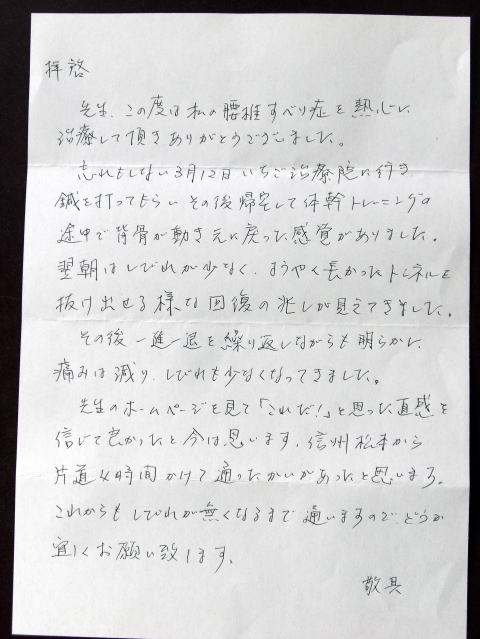 拝啓
先生、この度は私の腰椎すべり症を熱心に
治療して頂きありがとうございました。
忘れもしない3月12日いちご治療院に行き
鍼を打ってもらいその後帰宅して体幹トレーニングの
途中で背骨が動き元に戻った感覚がありました。
翌朝はしびれが少なく、ようやく長かったトンネルを
抜け出せる様な回復の兆しが見えてきました。
その後一進一退を繰り返しながらも明らかに
痛みは減り、しびれも少なくなってきました。
先生のホームページを見て「これだ!」と思った直感を
信じて良かったと今は思います。信州松本から
片道4時間かけて通ったかいがあったと思います。
これからもしびれが無くなるまで通いますのでどうか
宜しくお願い致します。
敬具